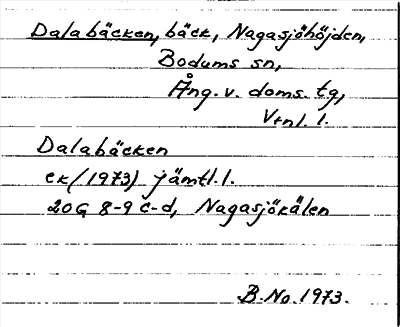 Dalabäcken, bäck, Nagasjöhöjden,
Bodums sn,
Ång. v. doms. tg,
Vtnl. l.
Dalabäcken
ek (1973) jämtl. l.
20G 8-9 c-d, Nagasjökälen
B. No. 1973.